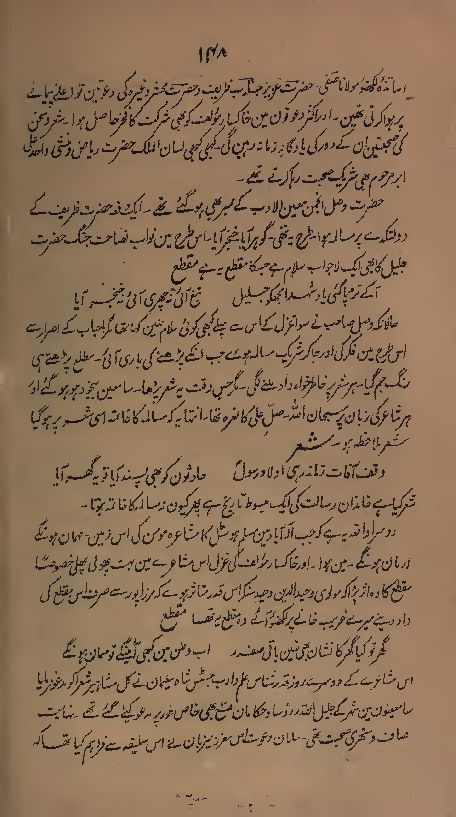 ۱۴۸
اساتذہ لکھنؤ مولانا صفی حضرت عزیز جناب ظریف و حضرت محشر وغیرہ کی دعوتیں تو اعلیٰ پیمانے
پر ہوا کرتی تھیں۔ اور اکثر دعوتون مین خاکسار مؤلف کو بھی شرکت کا فخر حاصل ہوا۔ شعر و سخن
کی صحبتین ان کے دور کی یادگار زمانہ رہین گی۔ کبھی کبھی لسان الملک حضرت ریاض و منشی واحد علی
ابر مرحوم بھی شریک صحبت رہا کرتے تھے۔
حضرت وصل انجمن معین الادب کے ممبر بھی ہو گئے تھے۔ ایک دفعہ حضرت ظریف کے
دولتکدے پر مسالمہ ہوا طرح یہ تھی۔ گوہر آیا۔ خنجر آیا۔ اس طرح مین نواب فصاحت جنگ حضرت
جلیل کا بھی ایک لاجواب سلام ہے جسکا مقطع یہ ہے مقطع
آکے تڑپا گئی یاد شہدا مجھکو جلیل تیغ آئی نہ چھری آئی نہ خنجر آیا
حالانکہ وصل صاحب نے سوا غزل کے اس سے پہلے کبھی کوئی سلام نہین کہا تھا مگر احباب کے اصرار سے
اس طرح مین فکر کی اور جاکر شریک مسالمہ ہوئے جب انکے پڑھنے کی باری آئی۔ مطلع پڑھتے ہی
رنگ جم گیا۔ ہر شعر پر خاطر خواہ داد ملنے لگی۔ مگر جس وقت یہ شعر پڑھا۔ سامعین بیخود ہو ہو گئے اور
ہر شاعر کی زبان پر سبحان اللہ۔ صل علیٰ کا نعرہ تھا۔ انتہا یہ کہ مسالمہ کا خاتمہ اسی شعر پر ہو گیا
شعر ملاحظہ ہو۔ شعر
وقف آفات زمانہ رہی اولاد رسولؐ حادثون کو بھی پسند آیا تو یہ گھر آیا
شعر کیا ہے خاندان رسالت کی ایک مبسوط تاریخ ہے پھر کیون نہ مسالمہ کا خاتمہ ہوتا۔
دوسرا واقعہ یہ ہے کہ جب الہ آباد مین مسلم ہوسٹل کا مشاعرہ مومن کی اس زمین۔ مہمان ہونگے
ارمان ہونگے۔ مین ہوا۔ اور خاکسار مؤلف کی غزل اس مشاعرے مین بہت پھولی پھلی خصوصاً
مقطع کا وہ اثر پڑا کہ مولوی وحیدالدین وحید سنکر اس قدر متاثر ہوے کہ مرزاپور سے صرف اس مقطع کی
داد دینے میرے غریب خانے پر لکھنؤ آئے وہ مقطع یہ تھا مقطع
گھر تو کیا گھر کا نشان بھی نہین باقی صفدر اب وطن مین کبھی آئینگے تو مہمان ہونگے
اس مشاعرے کے دوسرے روز قدرشناس علم و ادب جسٹس شاہ سلیمان نے کل مشاہیر شعرا کو مدعو فرمایا
سامعینون مین شہر کے جلیل القدر رؤسا و حکامان ضلع بھی خاص طور پر مدعو کیے گئے تھے۔ نہایت
صاف و ستھری صحبت تھی۔ سامان دعوت اس معزز میزبان نے اس سلیقہ سے فراہم کیا تھا کہ